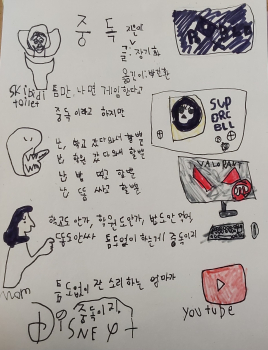 중독
지은이
글: 장기화
옮긴이: 박진환
ROBLOX
skibidi
toilet
틈만 나면 게임한다고
중독 이라고 하지만
SUPERCELL
난 학교 갔다와서 할뿐
난 학원 갔다와서 할뿐
난 밥 먹고 할뿐
난 똥 싸고 할뿐
VALORANT
학교도 안가, 학원도 안가, 밥도 안 먹어,
똥도 안싸 틈도없이 하는게 중독이지
mom
틈도없이 잔소리하는 엄마가
중독이지.
DISNEY+
youtube